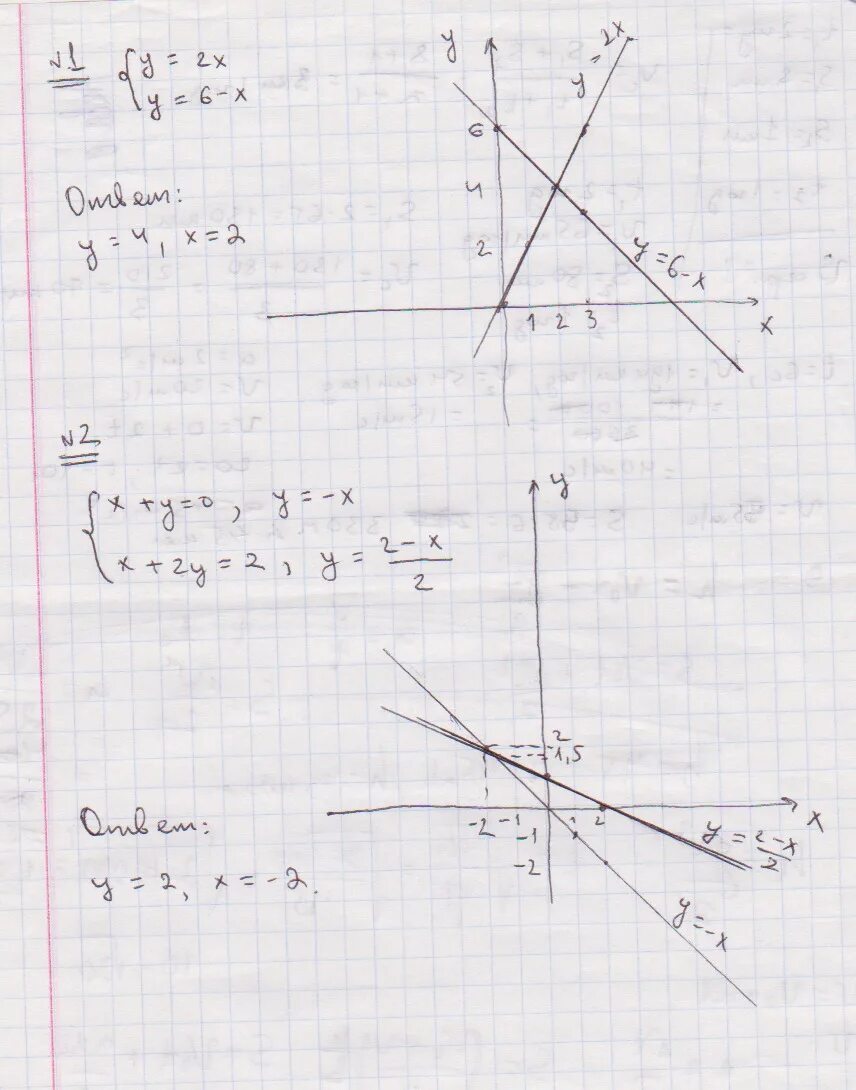 №1
y = 2x
y = 6-x
Ответ:
y = 4, x = 2
y
y = 2x
6
4
2
y = 6-x
1 2 3
x
№2
x + y = 0, y = -x
x + 2y = 2, y = \frac{2-x}{2}
y
2
1,5
-2 -1 1 2
x
-1
-2
y = \frac{2-x}{2}
y = -x
Ответ:
y = 2, x = -2.